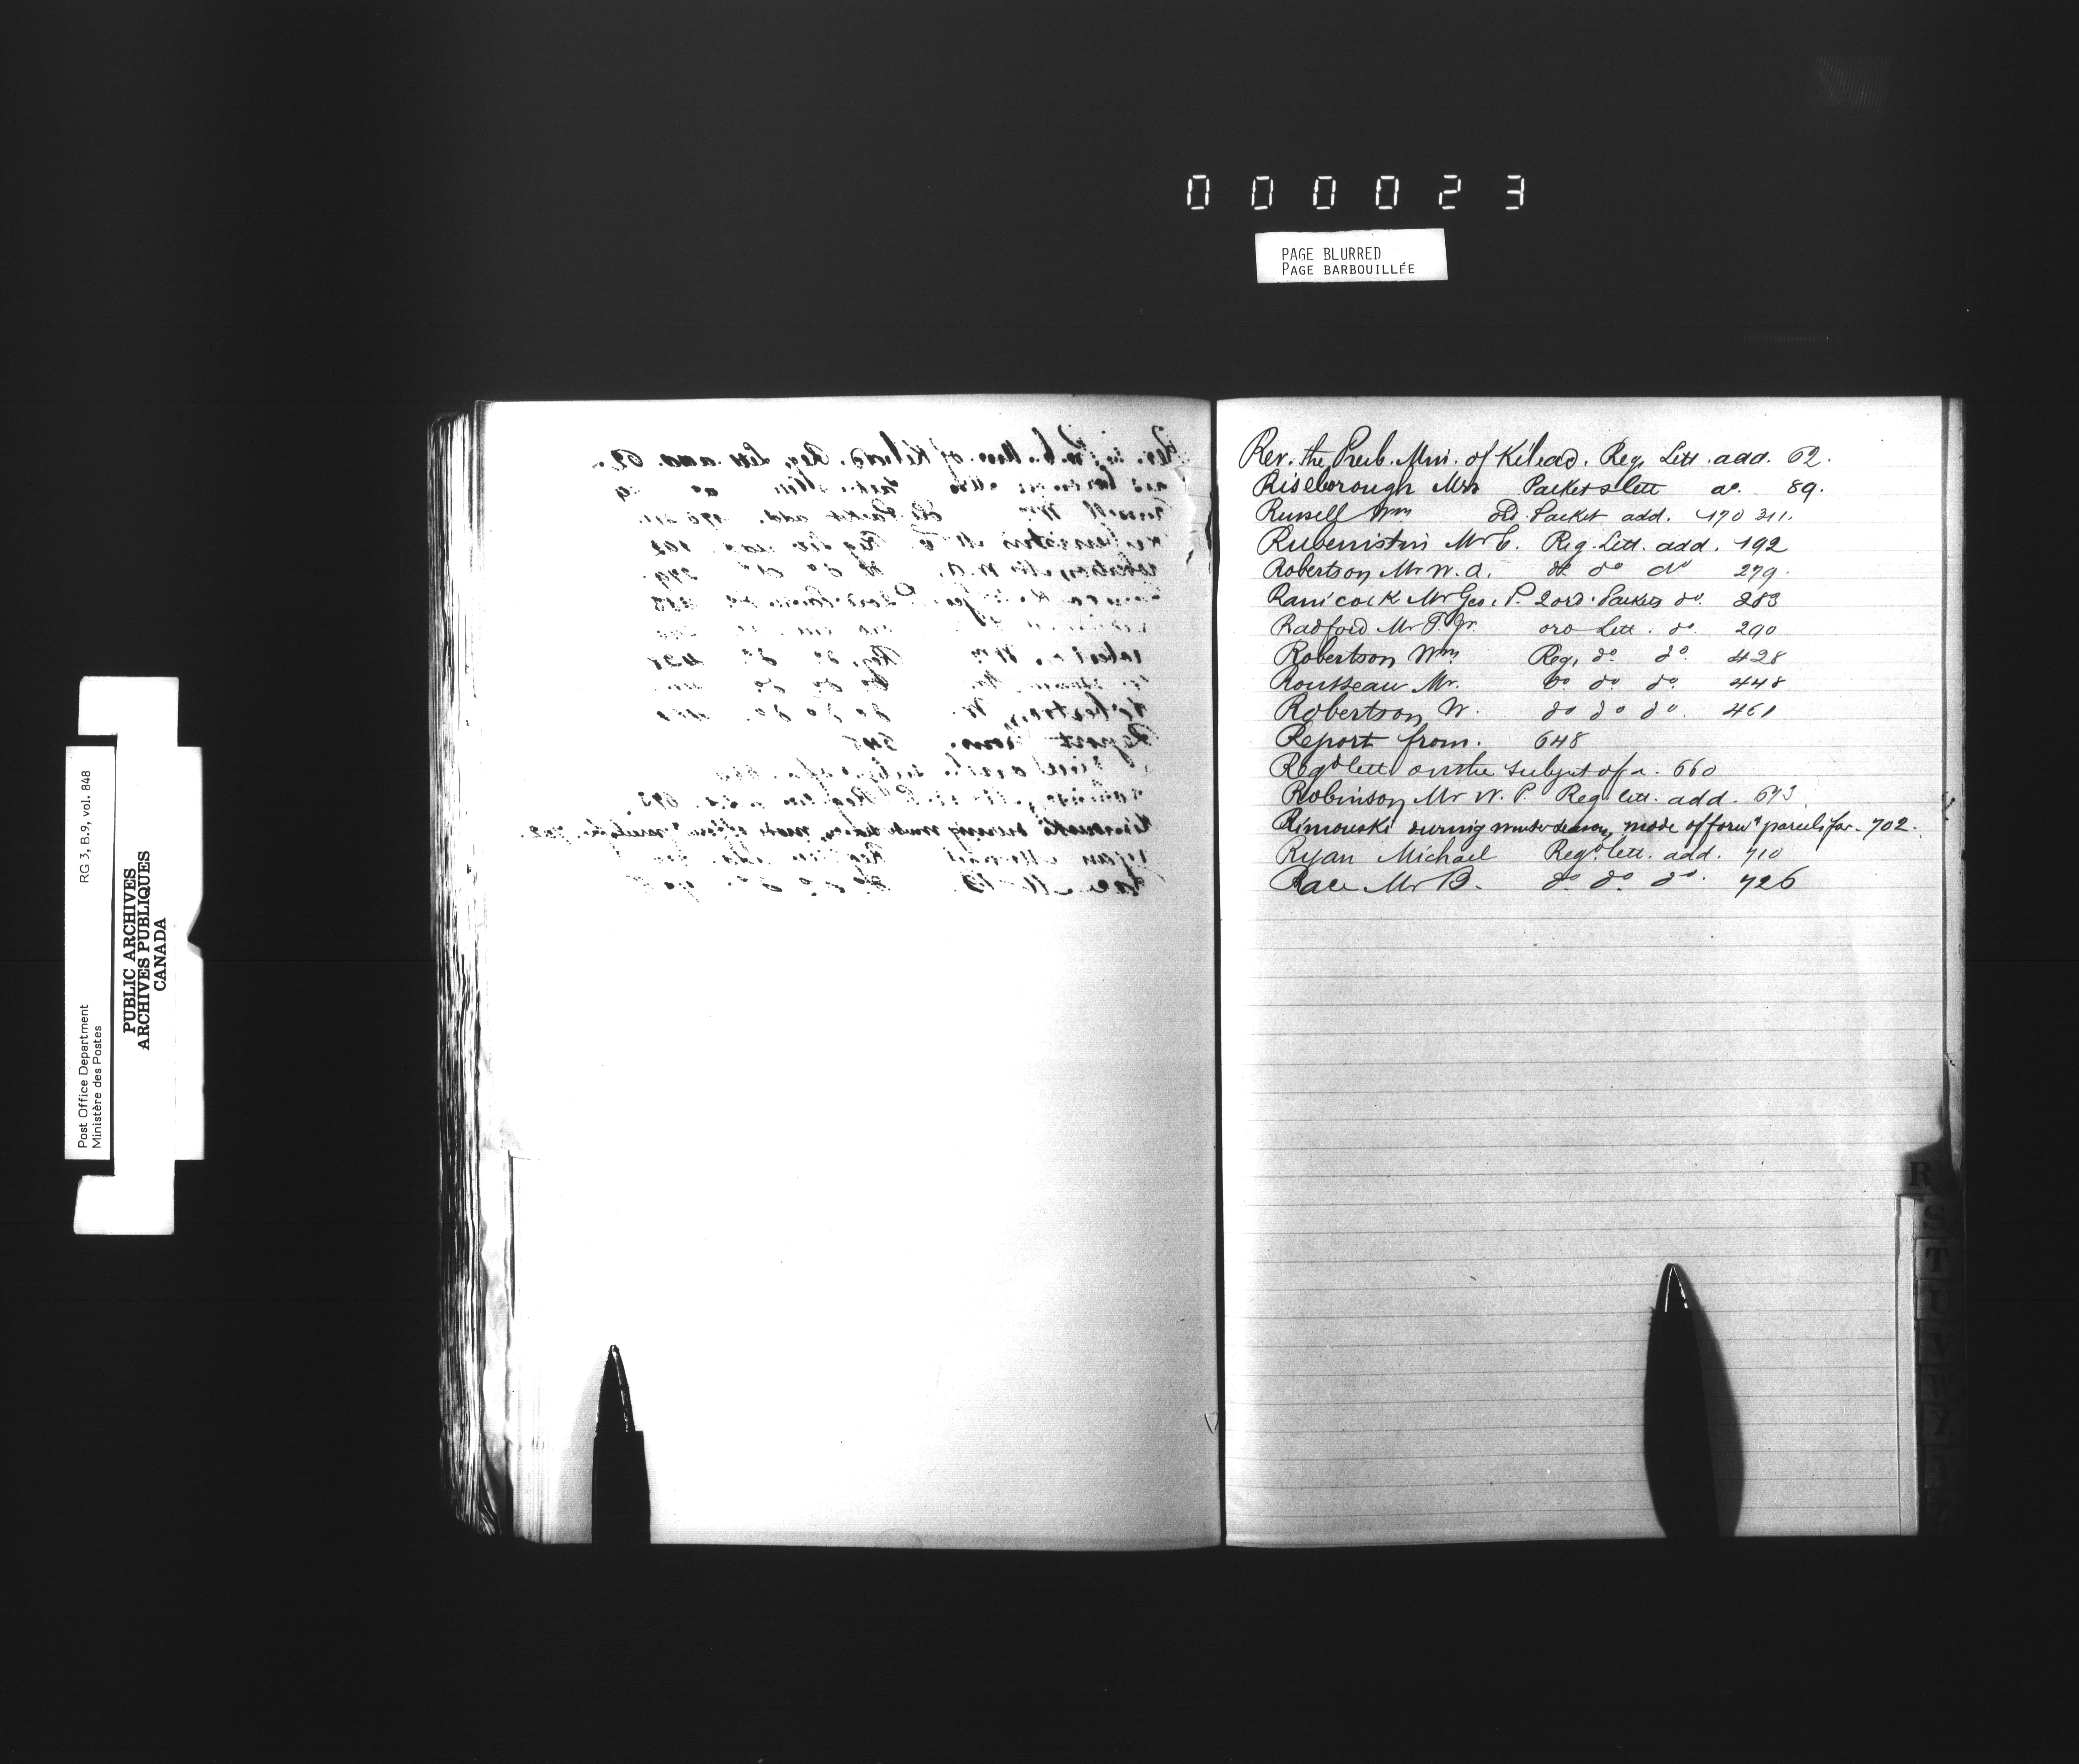 000023
PAGE BLURRED
PAGE BARBOUILLÉE
Post Office Department
Ministère des Postes
RG 3, B.9, vol. 848
PUBLIC ARCHIVES
ARCHIVES PUBLIQUES
CANADA
Rev. the Presb. Min. of Kilead. Reg. Lett. add. 62.
Riseborough Mrs Packet & lett do. 89.
Russell Wm ord. Packet add. 170 311.
Rubenistin Mr C. Reg. Lett. add. 192
Robertson Mr W. A. do do do 279.
Ranicock Mr Geo. P. 2 ord. Packets do. 283
Radford Mr P. Jr. ord Lett. do. 290
Robertson Wm Reg. do do. 428
Rousseau Mr. do. do. do. 448
Robertson W. do do do. 461
Report from. 648
Regd lett on the subject of a. 660
Robinson Mr W. P. Reg. lett. add. 693
Rimouski during winter season, mode of forwd parcels for. 702.
Ryan Michael Regd. lett. add. 710
Race Mr B. do. do. do. 726
R
S
T
U